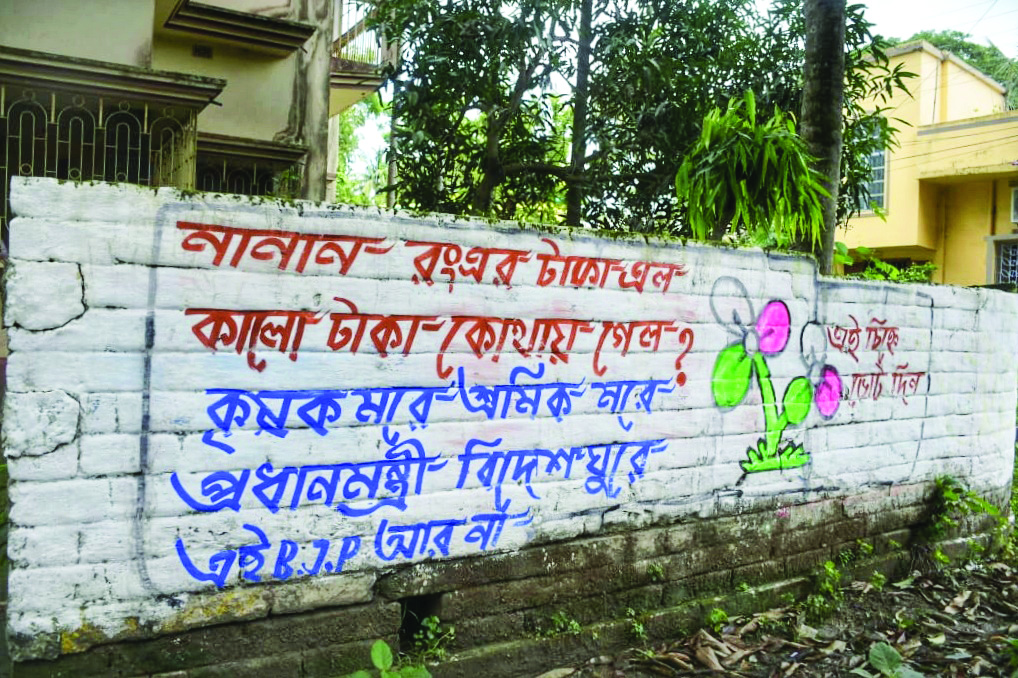 নানান রংএর টাকা এল
কালো টাকা কোথায় গেল?
কৃষক মরে শ্রমিক মরে
প্রধানমন্ত্রী বিদেশ ঘুরে
এই B.J.P আর না
এই চিহ্নে
ভোট দিন